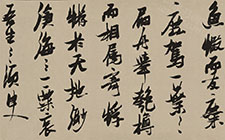 魚蝦而友麋
鹿駕一葉之
扁舟舉匏樽
而相屬寄蜉
蝣於天地渺
滄海之一粟哀
吾生之須臾